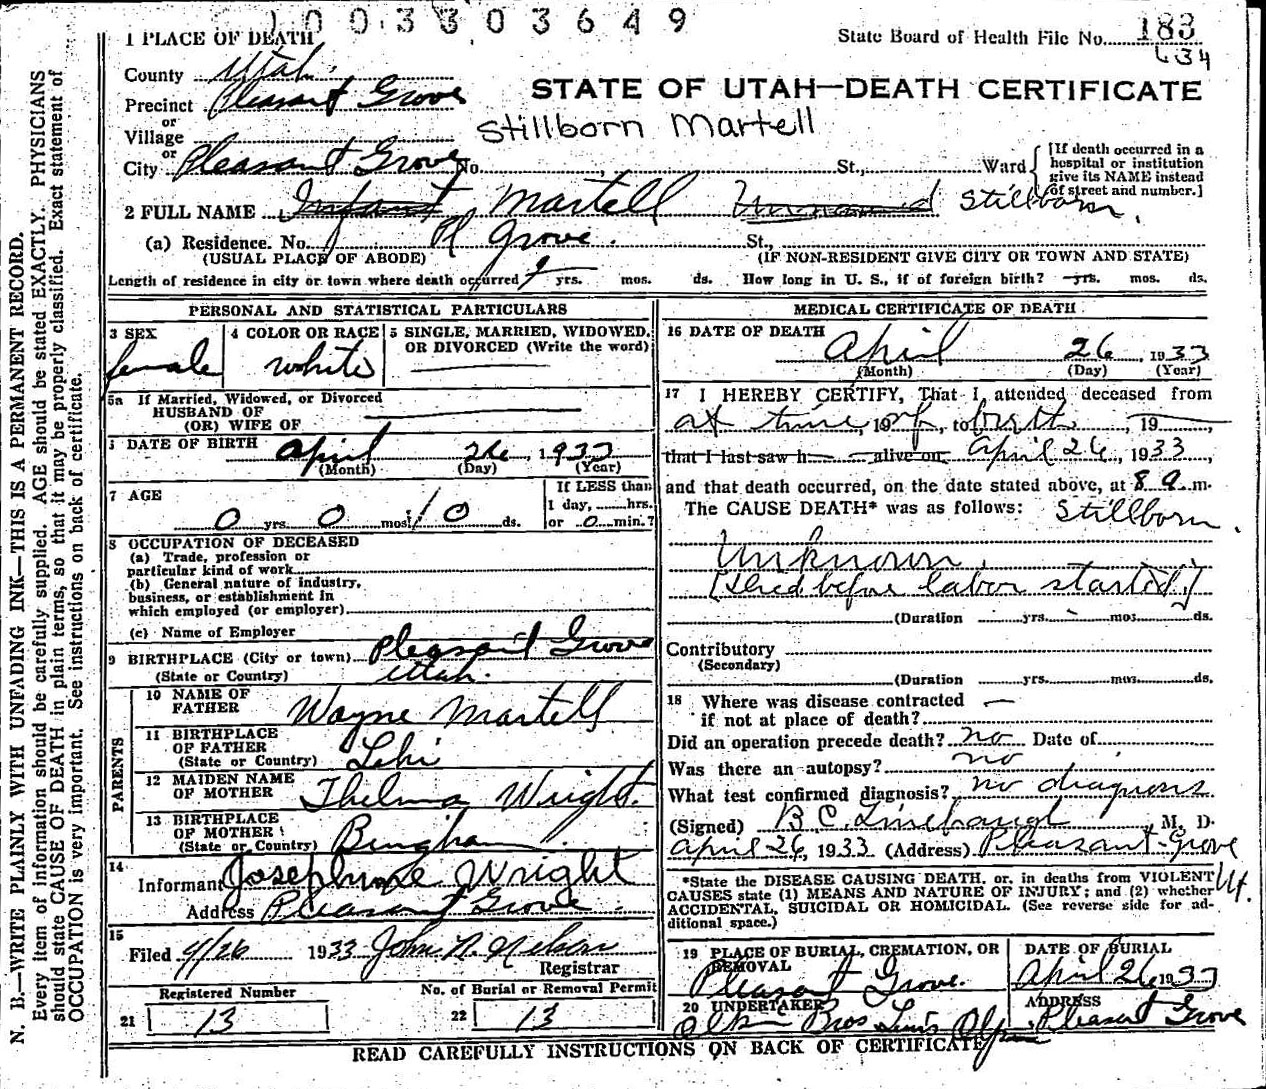 1003303649
1 PLACE OF DEATH
State Board of Health File No. 183
634
County Utah
Precinct Pleasant Grove
or
Village
or
City Pleasant Grove No. St., Ward
STATE OF UTAH—DEATH CERTIFICATE
Stillborn Martell
[If death occurred in a
hospital or institution
give its NAME instead
of street and number.]
2 FULL NAME Infant Martell Unnamed Stillborn.
(a) Residence. No. Pl Grove. St.,
(USUAL PLACE OF ABODE) (IF NON-RESIDENT GIVE CITY OR TOWN AND STATE)
Length of residence in city or town where death occurred yrs. mos. ds. How long in U. S., if of foreign birth? yrs. mos. ds.
PERSONAL AND STATISTICAL PARTICULARS
3 SEX 4 COLOR OR RACE 5 SINGLE, MARRIED, WIDOWED,
OR DIVORCED (Write the word)
female white
5a If Married, Widowed, or Divorced
HUSBAND OF
(OR) WIFE OF
DATE OF BIRTH April 26, 1933
(Month) (Day) (Year)
7 AGE
If LESS than
1 day, hrs.
or 0 min.?
0 yrs. 0 mos. 0 ds.
8 OCCUPATION OF DECEASED
(a) Trade, profession or
particular kind of work
(b) General nature of industry,
business, or establishment in
which employed (or employer)
(c) Name of Employer
9 BIRTHPLACE (City or town) Pleasant Grove
(State or Country) Utah.
PARENTS
10 NAME OF
FATHER Wayne Martell
11 BIRTHPLACE
OF FATHER
(State or Country) Lehi
12 MAIDEN NAME
OF MOTHER Thelma Wright.
13 BIRTHPLACE
OF MOTHER
(State or Country) Bingham
14
Informant Josephine Wright
Address Pleasant Grove.
15
Filed 4/26 1933 John R. Nelson
Registrar
Registered Number No. of Burial or Removal Permit
21 13 22 13
MEDICAL CERTIFICATE OF DEATH
16 DATE OF DEATH
April 26, 1933
(Month) (Day) (Year)
17 I HEREBY CERTIFY, That I attended deceased from
at time, 19 of, to birth, 19
that I last saw h alive on April 26, 1933,
and that death occurred, on the date stated above, at 8 a.m.
The CAUSE DEATH* was as follows: Stillborn.
Unknown.
(Died before labor started)
(Duration yrs. mos. ds.
Contributory
(Secondary)
(Duration yrs. mos. ds.
18 Where was disease contracted —
if not at place of death?
Did an operation precede death? no Date of
Was there an autopsy? no
What test confirmed diagnosis? no diagnosis
(Signed) B C Linebaugh, M. D.
April 26, 1933 (Address) Pleasant Grove
Ut.
*State the DISEASE CAUSING DEATH, or, in deaths from VIOLENT
CAUSES state (1) MEANS AND NATURE OF INJURY; and (2) whether
ACCIDENTAL, SUICIDAL OR HOMICIDAL. (See reverse side for ad-
ditional space.)
19 PLACE OF BURIAL, CREMATION, OR
REMOVAL
Pleasant Grove.
DATE OF BURIAL
April 26, 1933
20 UNDERTAKER
Olpin Bros Lewis Olpin
ADDRESS
Pleasant Grove
READ CAREFULLY INSTRUCTIONS ON BACK OF CERTIFICATE
N. B.—WRITE PLAINLY WITH UNFADING INK—THIS IS A PERMANENT RECORD.
Every item of information should be carefully supplied. AGE should be stated EXACTLY. PHYSICIANS
should state CAUSE OF DEATH in plain terms, so that it may be properly classified. Exact statement of
OCCUPATION is very important. See instructions on back of certificate.